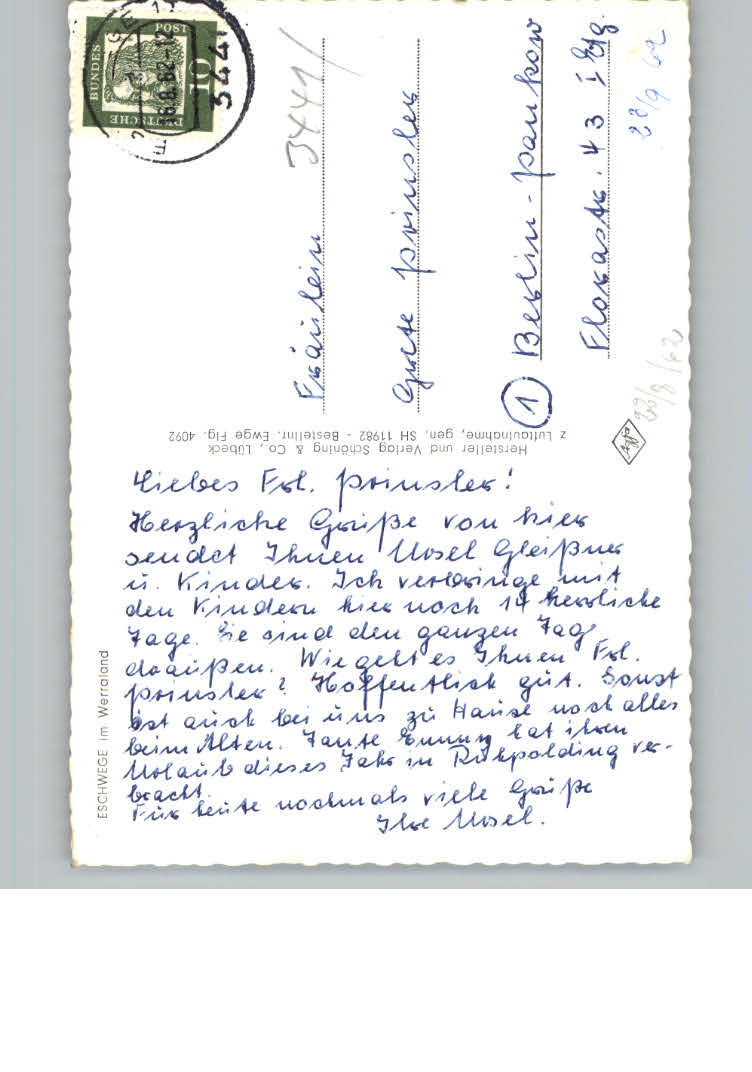 Liebes Frl. Prinsler!
Herzliche Grüße von hier
sendet Ihnen Ursel Gleißner
u. Kinder. Ich verbringe mit
den Kindern hier noch 14 herrliche
Tage. Sie sind den ganzen Tag
draußen. Wie geht es Ihnen Frl.
Prinsler? Hoffentlich gut. Sonst
ist auch bei uns zu Hause noch alles
beim Alten. Tante Emmy hat ihren
Urlaub dieses Jahr in Ruhpolding ver-
bracht.
Für heute nochmals viele Grüße
Ihre Ursel.
ESCHWEGE im Werraland
Hersteller und Verlag Schöning & Co., Lübeck
z Luftaufnahme, gen. SH 11982 - Bestellnr. Ewge Flg. 4092
Agfa
3441/
Fräulein
Grete Prinsler
1 Berlin-Pankow
Florastr. 43 I Etg.
23/8/62
23/9 62
DEUTSCHE
BUNDES
POST
10
3441